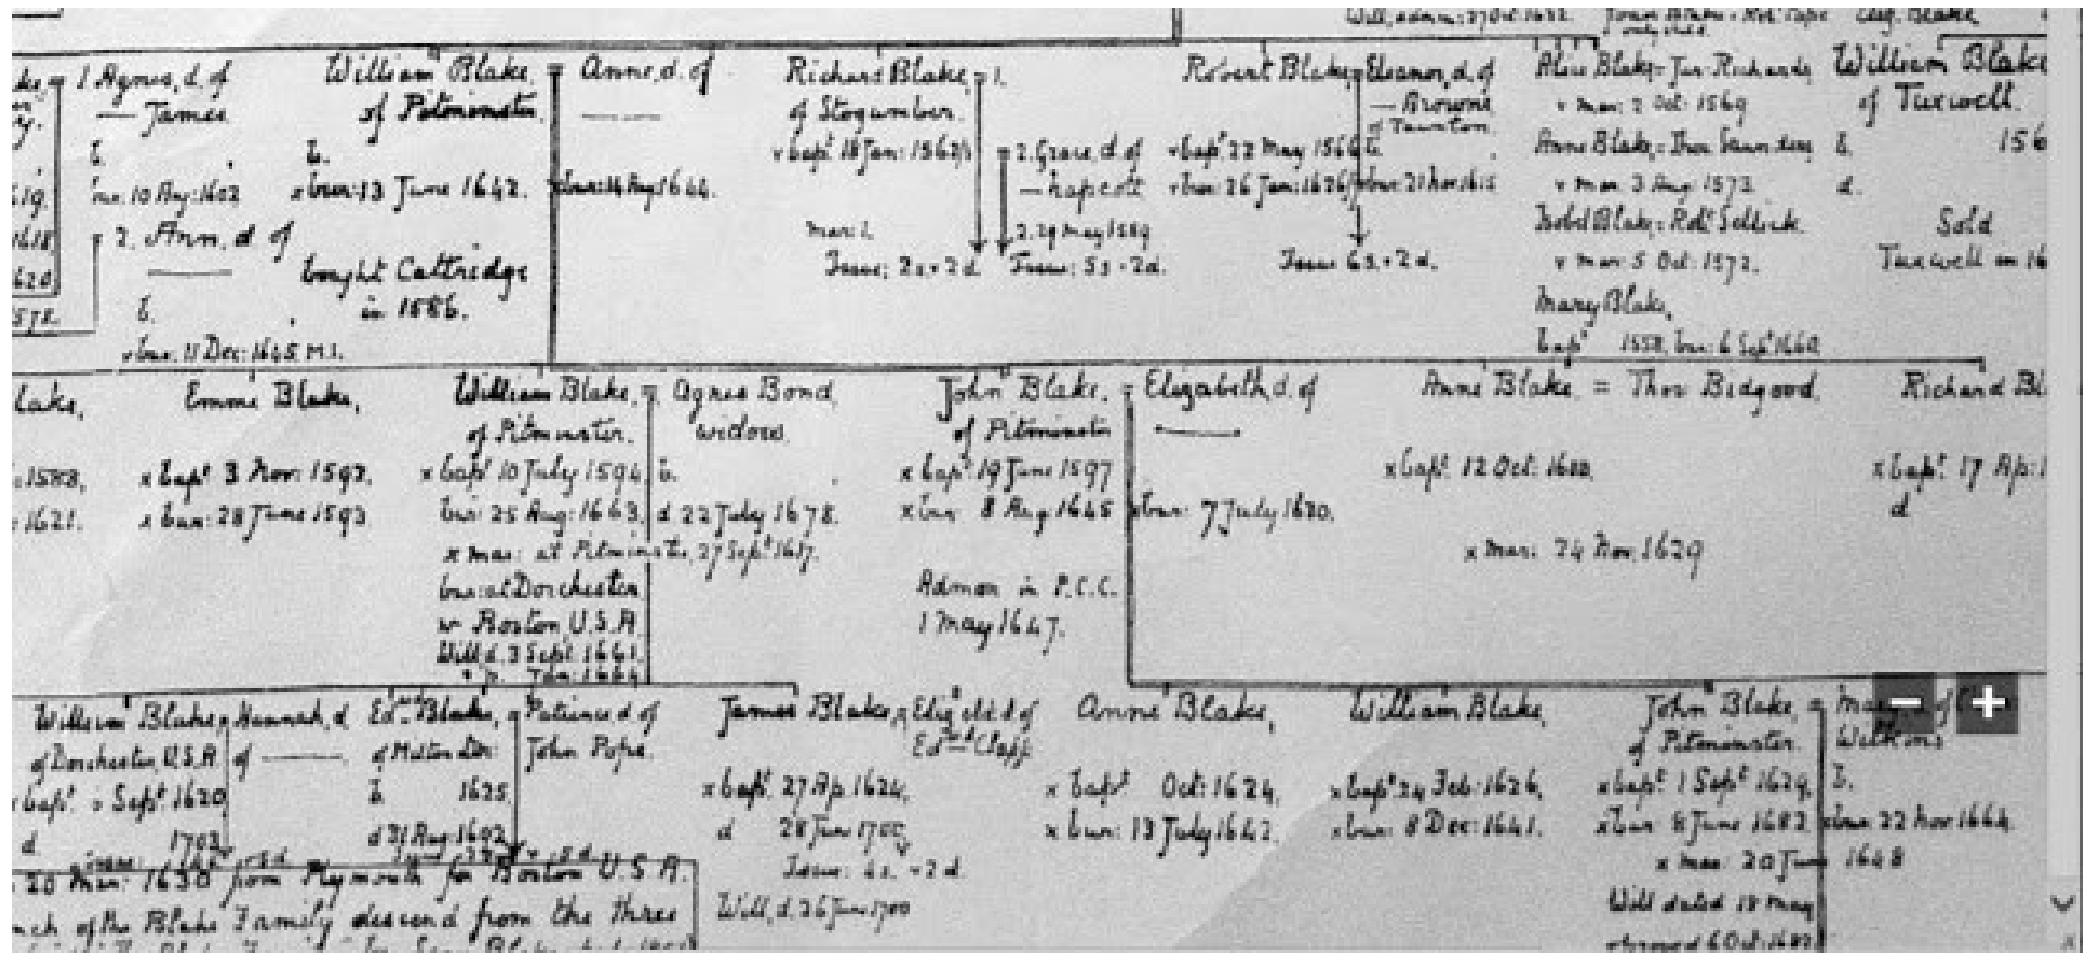 Will, admin: 27 Oct: 1632.
only child
Blake
1. Agnes, d. of
— James
b.
bur. 10 Aug: 1602
2. Ann, d. of
b.
x bur. 11 Dec: 1645. M.I.
William Blake,
of Pitminster.
b.
x bur: 13 June 1642.
bought Cattridge
in 1586.
Anne, d. of
x bur: 14 Aug 1644.
Richard Blake,
of Stogumber.
bapt. 18 Jan: 1562/3
mar: 1.
Issue: 2s + 2d.
1.
2. Grace, d. of
2. 29 May 1589
Issue: 5s - 2d.
Robert Blake,
bapt. 22 May 1566
bur: 26 Jan: 1626/
Eleanor, d. of
— Browne
of Taunton.
b.
bur: 21 Nov: 1615
Issue 6s. + 2d.
Alice Blake = Jas. Richards
mar: 2 Oct: 1569
Anne Blake, = Thos Saunders
mar 3 Aug: 1572
Isobel Blake, = Robt. Sellick
mar: 5 Oct: 1572.
Mary Blake,
bapt 1558, bur: 6 Sept 1660
William Blake
of Tuxwell.
b. 156
d.
Sold
Tuxwell in 16
619.
1618,
1620
1572.
lake,
1588,
1621.
Emme Blake,
x bapt 3 Nov: 1592.
x bur: 28 June 1593
William Blake,
of Pitminster.
x bapt 10 July 1594
bur: 25 Aug: 1663.
x mar: at Pitminster, 27 Sept 1617.
bur: at Dorchester
nr Boston, U.S.A.
Will d. 3 Sept. 1661.
Agnes Bond,
widow,
b.
d. 22 July 1678.
John Blake,
of Pitminster
x bapt 19 June 1597
x bur 8 Aug: 1645
Admon in P.C.C.
1 May 1647.
Elizabeth, d. of
x bur: 7 July 1680.
Anne Blake, = Thos Bidgood,
x bapt. 12 Oct: 1600.
x mar: 24 Nov: 1629
Richard Bl
x bapt. 17 Ap: 1
d
William Blake,
of Dorchester, U.S.A.
bapt. Sept. 1620
d 1703
Hannah, d
of
Edwd Blake,
b. 1625,
d 31 Aug: 1692
Patience, d. of
John Pope.
James Blake,
x bapt. 27 Ap. 1624.
d 28 June 1700
Will, d. 26 June 1700
Elizth d. of
Edwd Clapp
Anne Blake,
x bapt Oct: 1624,
x bur: 13 July 1642.
William Blake,
x bapt 24 Feb: 1626,
x bur: 8 Dec: 1641.
John Blake,
of Pitminster.
x bapt. 1 Sept 1629,
x bur 8 June 1682.
x mar: 20 June 1648
Will dated 18 May
proved 6 Oct: 1682
Wilkins
b.
x bur 22 Nov 1664.
20 Mar: 1630 from Plymouth for Boston U.S.A.
nch of the Blake Family descend from the three